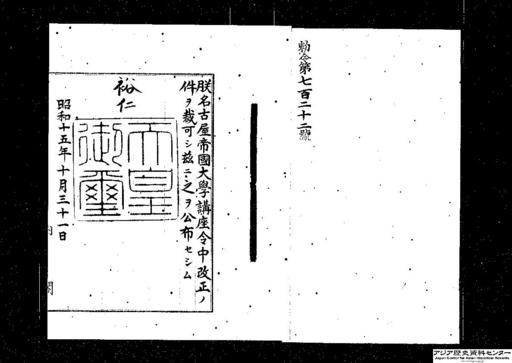 勅令第七百二十二號
朕名古屋帝國大學講座令中改正ノ
件ヲ裁可シ茲ニ之ヲ公布セシム
裕仁
天皇
御璽
昭和十五年十月三十一日
内閣
アジア歴史資料センター
Japan Center for Asian Historical Records